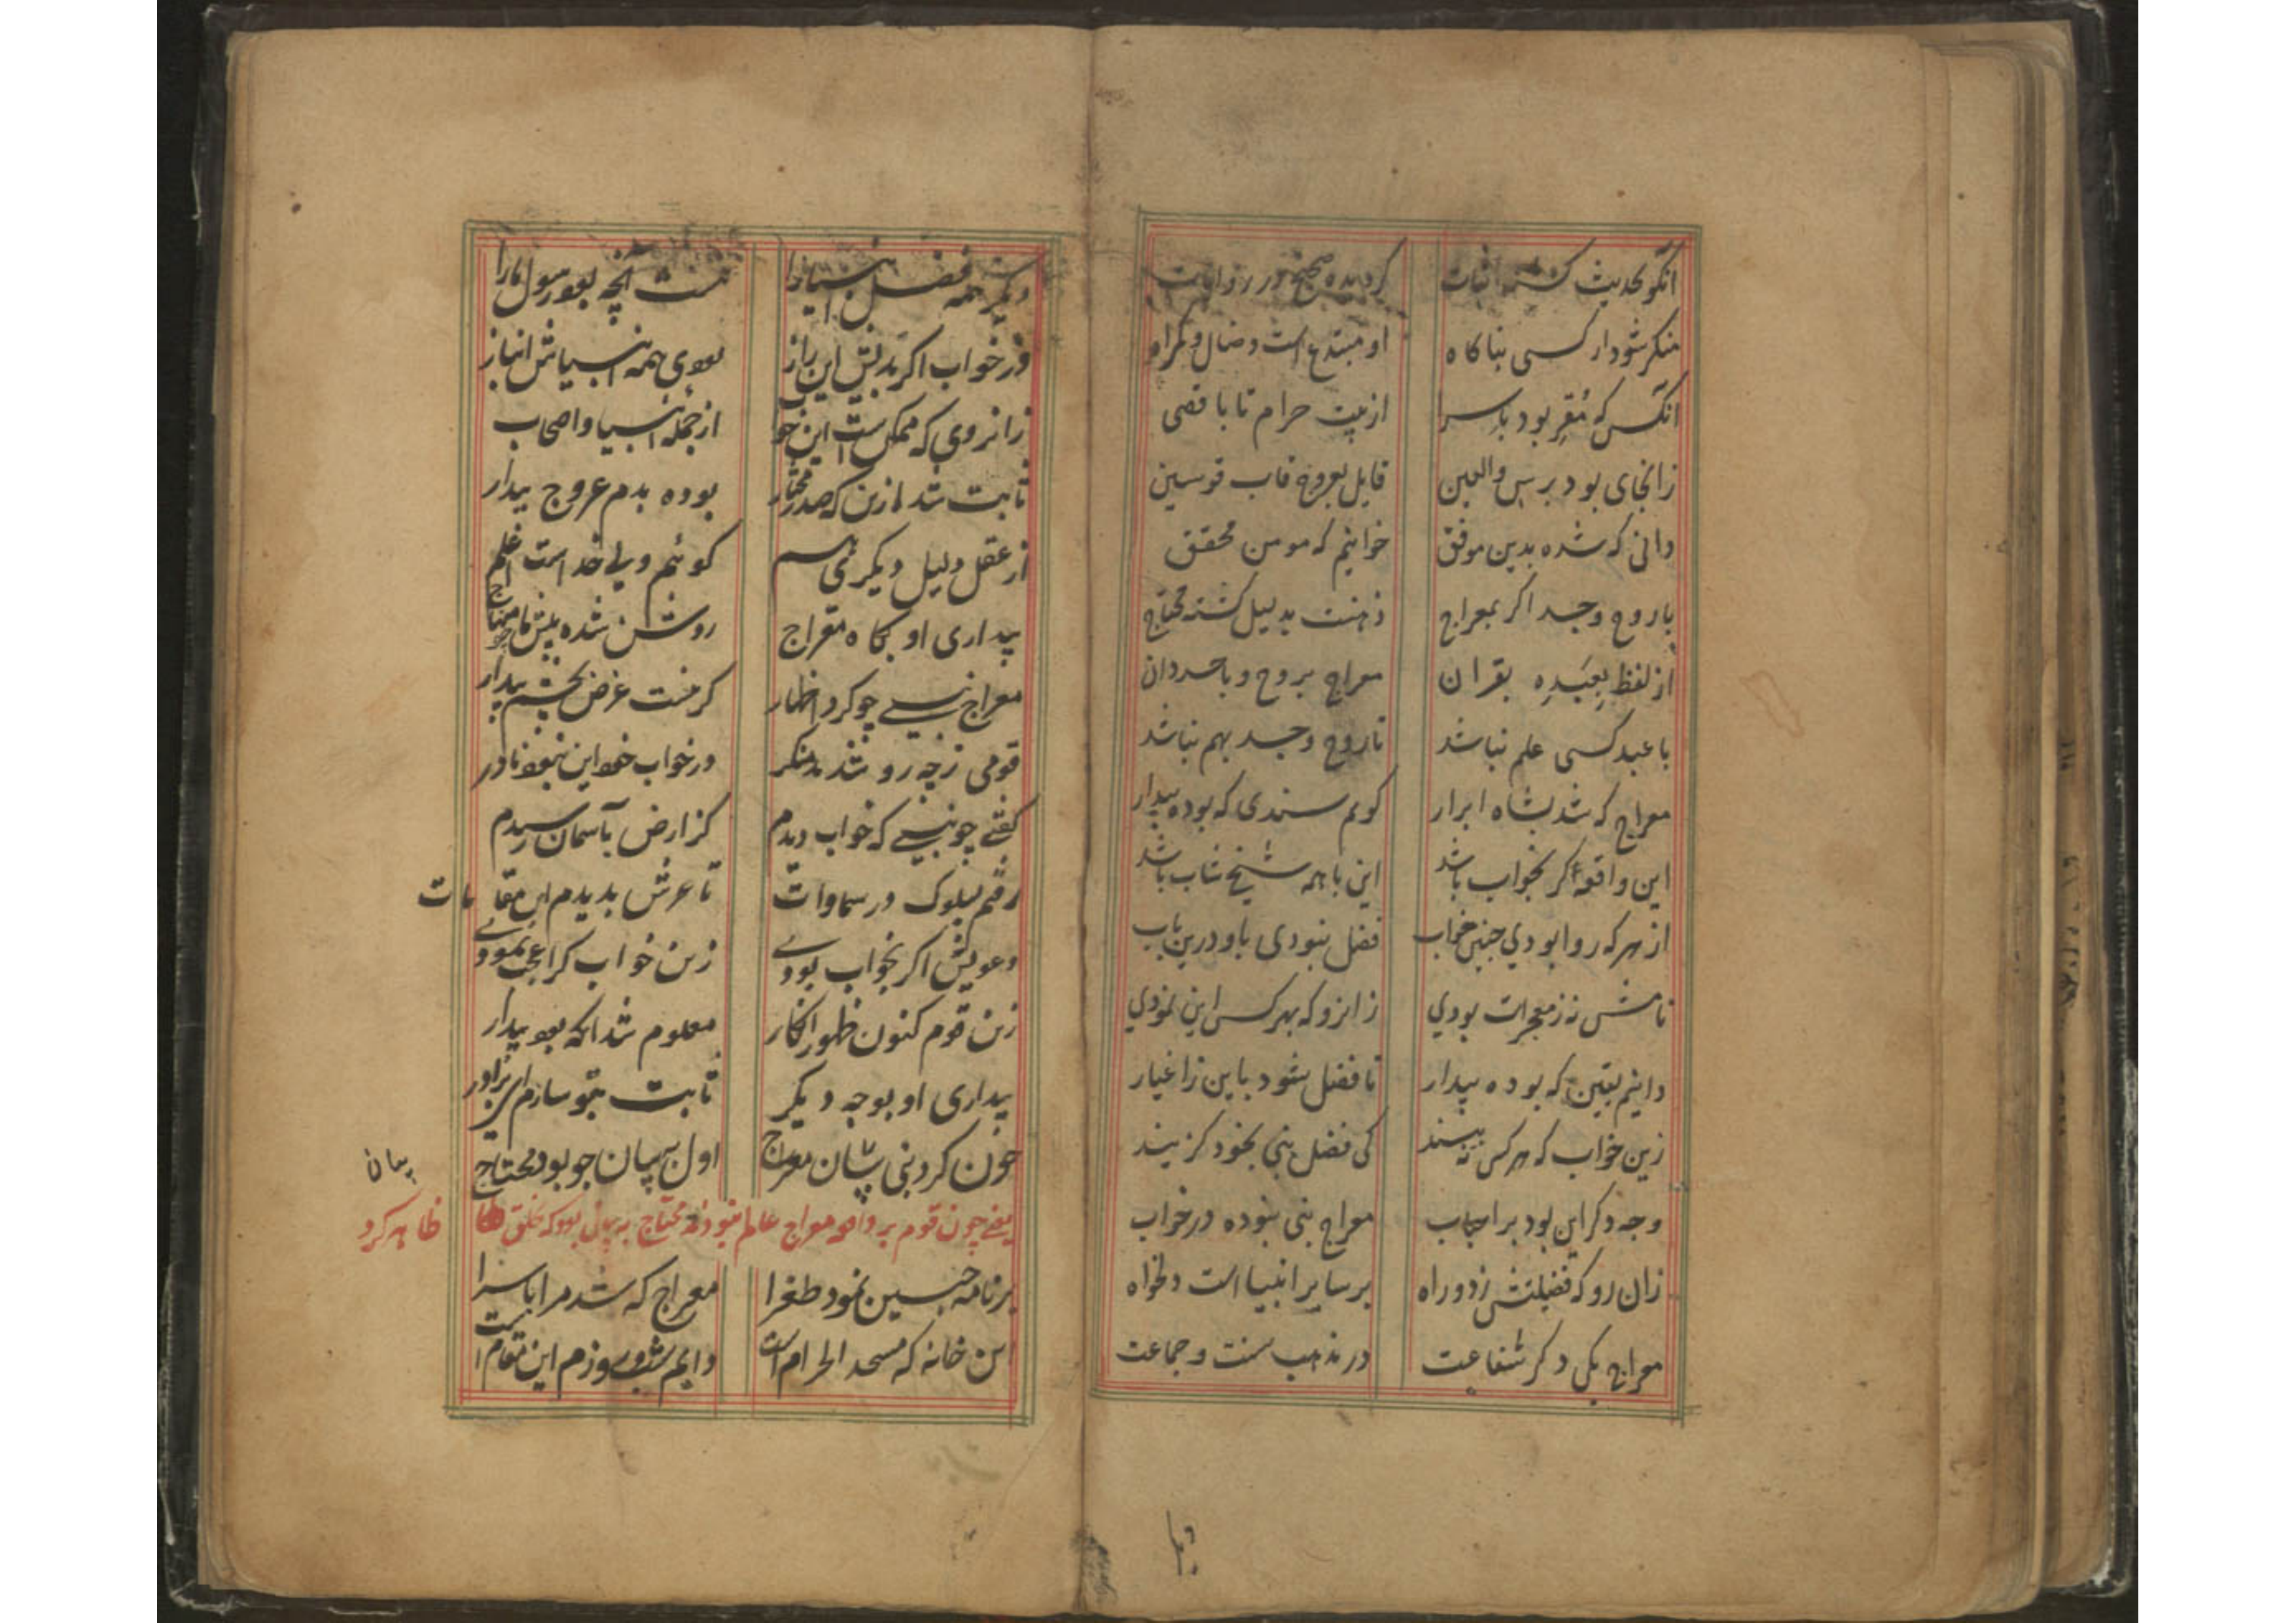 آنکو بحدیث کشته اثبات کردیده صحیح در روایات
منکر شود ار کسی بناکاه او مبتدع است و ضال و کمراه
آنکس که مُقِر بود باسرا از بیت حرام تا باقصی
زانجای بود برس والعین قایل بعروج قاب قوسین
دانی که شده بدین موفق خوانیم که مومن محقق
با روح وجسد اکر بمعراج ذهنت بدلیل کشته محتاج
از لفظ بِعَبْدِه بقران معراج بروح و باجسد دان
با عبد کسی علم نباشد تا روح وجسد بهم نباشد
معراج که شد بشاه ابرار کویم سندی که بوده بیدار
این واقعه کر بخواب باشد این با همه شیخ شاب باشد
از هر که روا بودي چنین خواب فضل نبودی باو درین باب
نامش نه ز معجزات بودي زانرو که بهر کس این نمودي
دانیم یقین که بوده بیدار تا فضل شود باین ز اغیار
زین خواب که هر کس ببیند کی فضل نبی بخود کزیند
وجه دکر این بود بر احباب معراج نبی نبوده در خواب
زان رو که فضیلتش ز دو راه بر سایر انبیا است دلخواه
معراج یکی دکر شفاعت در مذهب سنت و جماعت
دیکر همه فضل انبیا را هست آنچه بود رسول ما را
در خواب اکر بدیش این راز بودی همه انبیاش انباز
زانروی که ممکن است این خواب از جمله انبیا و اصحاب
ثابت شد ازین که صدر مختار بوده بدم عروج بیدار
از عقل دلیل دیکری هم کوئیم ولی خداست اعلم
بیداری او بکاه معراج روشن شده پیش ما چو منهاج
معراج نبی چو کرد اظهار کر هست غرض بچشم بیدار
قومی ز چه رو شدند منکر در خواب خود این نبود نادر
کفتی چو نبی که خواب دیدم کز ارض بآسمان رسیدم
رفتم بسلوک در سماوات تا عرش بدیدم این مقامات
دعویش اکر بخواب بودے زین خواب کرا عجب نمودے
زین قوم کنون ظهور انکار معلوم شد آنکه بود بیدار
بیداری او بوجه دیکر ثابت بتو سازم ای برادر
چون کرد نبی بیان معراج اول به بیان چو بود محتاج
بیان
یعنے چون قوم بر واقعه معراج عالم نبودند محتاج به بیان بود که بخلق ظاهر کرد
بر نامه چسین نمود طغرا معراج که شد مرا باسرا
این خانه که مسجد الحرام است دایم شب و روزم این مقام است